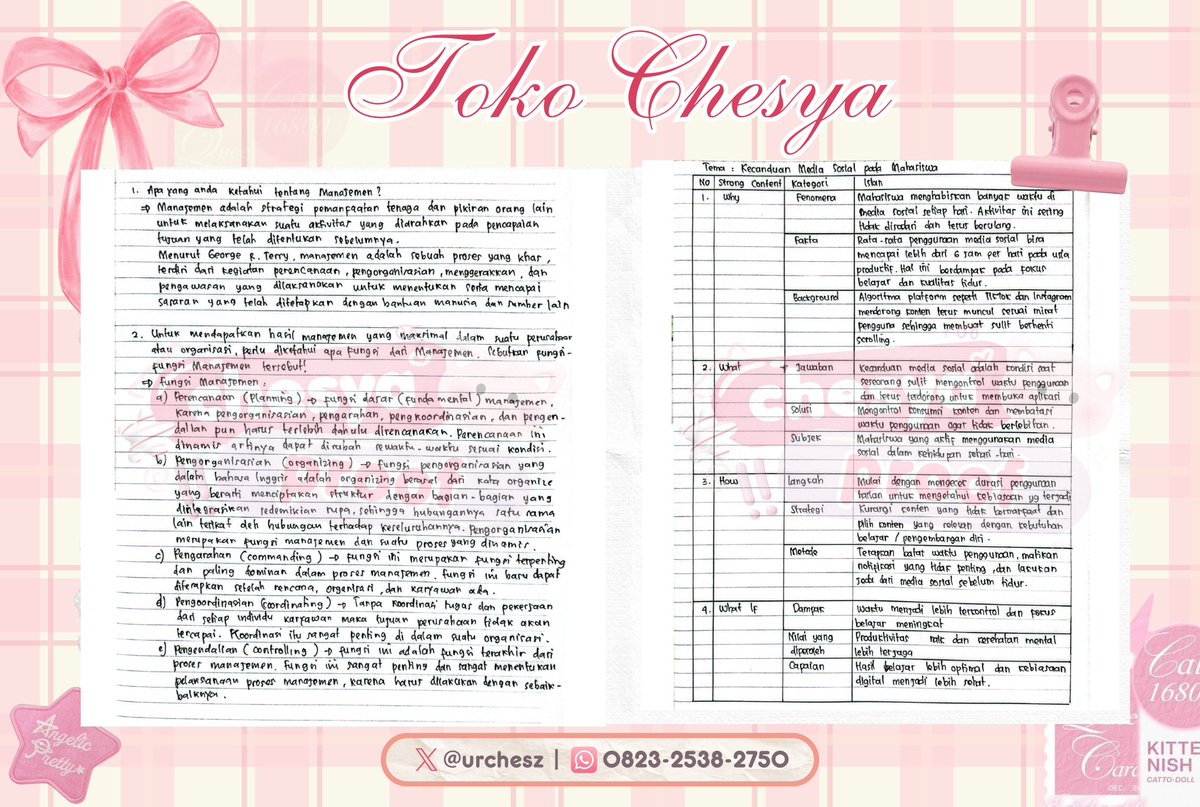 Toko Chesya
1. Apa yang anda ketahui tentang Manajemen?
⇒ Manajemen adalah strategi pemanfaatan tenaga dan pikiran orang lain
untuk melaksanakan suatu aktivitas yang diarahkan pada pencapaian
tujuan yang telah ditentukan sebelumnya.
Menurut George R. Terry, manajemen adalah sebuah proses yang khas,
terdiri dari kegiatan perencanaan, pengorganisasian, menggerakkan, dan
pengawasan yang dilaksanakan untuk menentukan serta mencapai
sasaran yang telah ditetapkan dengan bantuan manusia dan sumber lain
2. Untuk mendapatkan hasil manajemen yang maksimal dalam suatu perusahaan
atau organisasi, perlu diketahui apa fungsi dari Manajemen. Sebutkan fungsi-
fungsi Manajemen tersebut!
⇒ Fungsi Manajemen :
a) Perencanaan (Planning) → fungsi dasar (fundamental) manajemen,
karena pengorganisasian, pengarahan, pengkoordinasian, dan pengen-
dalian pun harus terlebih dahulu direncanakan. Perencanaan ini
dinamis artinya dapat dirubah sewaktu-waktu sesuai kondisi.
b) Pengorganisasian (organizing) → fungsi pengorganisasian yang
dalam bahasa Inggris adalah organizing berasal dari kata organize
yang berarti menciptakan struktur dengan bagian-bagian yang
diintegrasikan sedemikian rupa, sehingga hubungannya satu sama
lain terikat oleh hubungan terhadap keseluruhannya. Pengorganisasian
merupakan fungsi manajemen dan suatu proses yang dinamis.
c) Pengarahan (commanding) → fungsi ini merupakan fungsi terpenting
dan paling dominan dalam proses manajemen. fungsi ini baru dapat
diterapkan setelah rencana, organisasi, dan karyawan ada.
d) Pengoordinasian (coordinating) → Tanpa koordinasi tugas dan pekerjaan
dari setiap individu karyawan maka tujuan perusahaan tidak akan
tercapai. Koordinasi itu sangat penting di dalam suatu organisasi.
e) Pengendalian (controlling) → fungsi ini adalah fungsi terakhir dari
proses manajemen. Fungsi ini sangat penting dan sangat menentukan
pelaksanaan proses manajemen, karena harus dilakukan dengan sebaik-
baiknya.
Tema : Kecanduan Media Sosial pada Mahasiswa
No Strong Content Kategori Isian
1. Why Fenomena Mahasiswa menghabiskan banyak waktu di
media sosial setiap hari. Aktivitas ini sering
tidak disadari dan terus berulang.
Fakta Rata-rata penggunaan media sosial bisa
mencapai lebih dari 6 jam per hari pada usia
produktif. Hal ini berdampak pada fokus
belajar dan kualitas tidur.
Background Algoritma platform seperti TikTok dan Instagram
mendorong konten terus muncul sesuai minat
pengguna sehingga membuat sulit berhenti
scrolling.
2. What Jawaban Kecanduan media sosial adalah kondisi saat
seseorang sulit mengontrol waktu penggunaan
dan terus terdorong untuk membuka aplikasi
Solusi Mengontrol konsumsi konten dan membatasi
waktu penggunaan agar tidak berlebihan.
Subjek Mahasiswa yang aktif menggunakan media
sosial dalam kehidupan sehari-hari.
3. How Langkah Mulai dengan mengecek durasi penggunaan
harian untuk mengetahui kebiasaan yg terjadi
Strategi Kurangi konten yang tidak bermanfaat dan
pilih konten yang relevan dengan kebutuhan
belajar / pengembangan diri.
Metode Terapkan batas waktu penggunaan, matikan
notifikasi yang tidak penting, dan lakukan
jeda dari media sosial sebelum tidur.
4. What If Dampak Waktu menjadi lebih terkontrol dan fokus
belajar meningkat
Nilai yang Produktivitas naik dan kesehatan mental
diperoleh lebih terjaga
Capaian Hasil belajar lebih optimal dan kebiasaan
digital menjadi lebih sehat.
chesya
Proof
Angelic
Pretty
16800
KITTE
NISH
CATTO-DOLL
X @urchesz | 0823-2538-2750